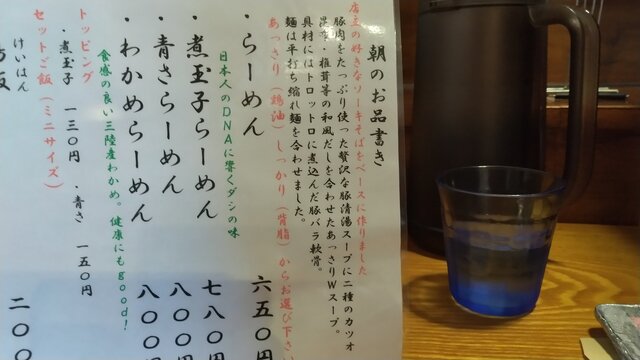 朝のお品書き
店主の好きなソーキそばをベースに作りました
豚肉をたっぷり使った贅沢な豚清湯スープに二種のカツオ
昆布・椎茸等の和風だしを合わせたあっさりWスープ。
具材にはトロットロに煮込んだ豚バラ軟骨。
麺は平打ち縮れ麺を合わせました。
あっさり（鶏油）しっかり（背脂）からお選び下さい
・らーめん 六五〇円
日本人のDNAに響くダシの味
・煮玉子らーめん 七八〇円
・青さらーめん 八〇〇円
・わかめらーめん 八〇〇円
食感の良い三陸産わかめ。健康にもgood！
トッピング
・煮玉子 一三〇円 ・青さ 一五〇円
セットご飯（ミニサイズ）
けいはん
二〇〇